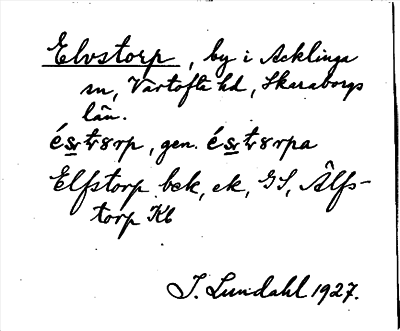 Elvstorp, by i Acklinga
sn, Vartofta hd, Skaraborgs
län.
gen.
Elfstorp bek, ek, GS, Älfs-
torp Kb
I. Lundahl 1927.